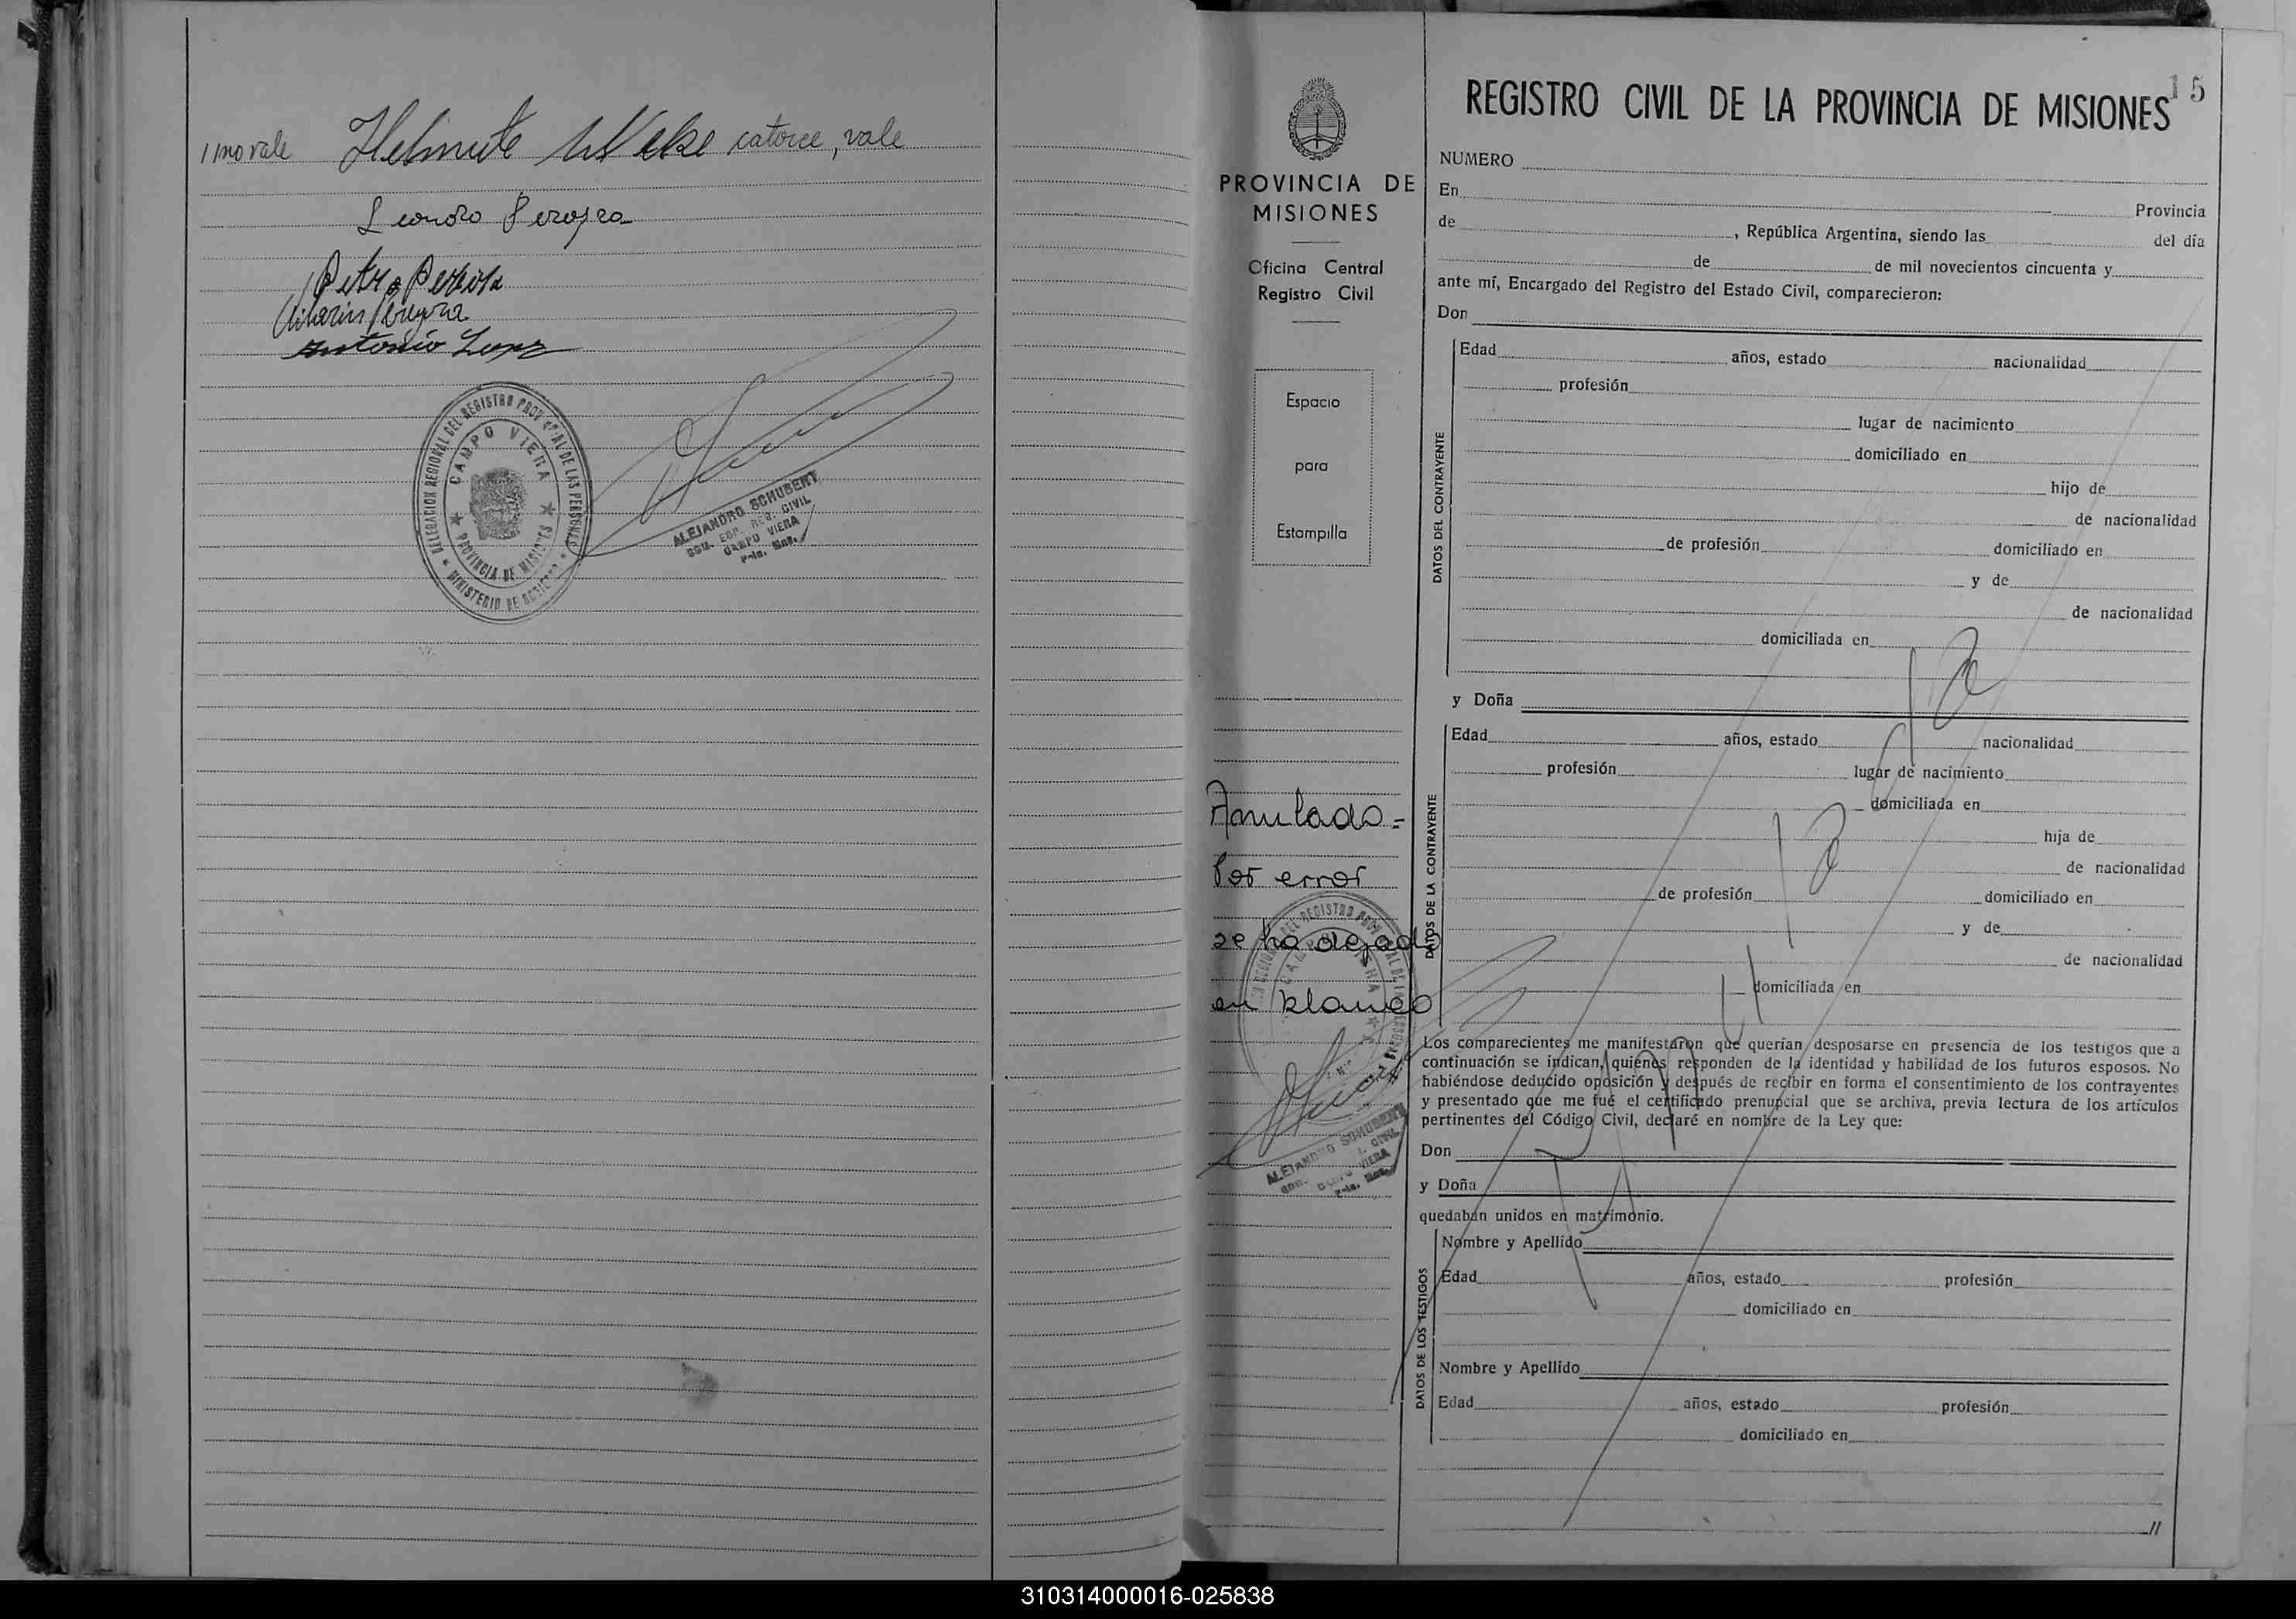 //no vale Helmute Weke catorce, vale
Leandro Pereyra
Petro Pereira
Antonio
DELEGACION REGIONAL DEL REGISTRO PROVINCIAL DE LAS PERSONAS
CAMPO VIERA
PROVINCIA DE MISIONES
MINISTERIO DE GOBIERNO
ALEJANDRO SCHUBERT
REG. CIVIL
CAMPO VIERA
Pcia. Mnes.
PROVINCIA DE
MISIONES
Oficina Central
Registro Civil
Espacio
para
Estampilla
Anulado =
Por error
se ha dejado
en blanco
ALEJANDRO SCHUBERT
CIVIL
CAMPO VIERA
Pcia. Mnes.
15
REGISTRO CIVIL DE LA PROVINCIA DE MISIONES
NUMERO
En Provincia
de , República Argentina, siendo las del día
de de mil novecientos cincuenta y
ante mí, Encargado del Registro del Estado Civil, comparecieron:
Don
DATOS DEL CONTRAYENTE
Edad años, estado nacionalidad
profesión
lugar de nacimiento
domiciliado en
hijo de
de nacionalidad
de profesión domiciliado en
y de
de nacionalidad
domiciliada en
y Doña
DATOS DE LA CONTRAYENTE
Edad años, estado nacionalidad
profesión lugar de nacimiento
domiciliada en
hija de
de nacionalidad
de profesión domiciliado en
y de
de nacionalidad
domiciliada en
Los comparecientes me manifestaron que querían desposarse en presencia de los testigos que a
continuación se indican, quienes responden de la identidad y habilidad de los futuros esposos. No
habiéndose deducido oposición y después de recibir en forma el consentimiento de los contrayentes
y presentado que me fué el certificado prenupcial que se archiva, previa lectura de los artículos
pertinentes del Código Civil, declaré en nombre de la Ley que:
Don
y Doña
quedaban unidos en matrimonio.
DATOS DE LOS TESTIGOS
Nombre y Apellido
Edad años, estado profesión
domiciliado en
Nombre y Apellido
Edad años, estado profesión
domiciliado en
//
310314000016-025838